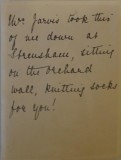 Mr. Jarvis took this
of me down at
Strensham, sitting
on the orchard
wall, knitting socks
for you!